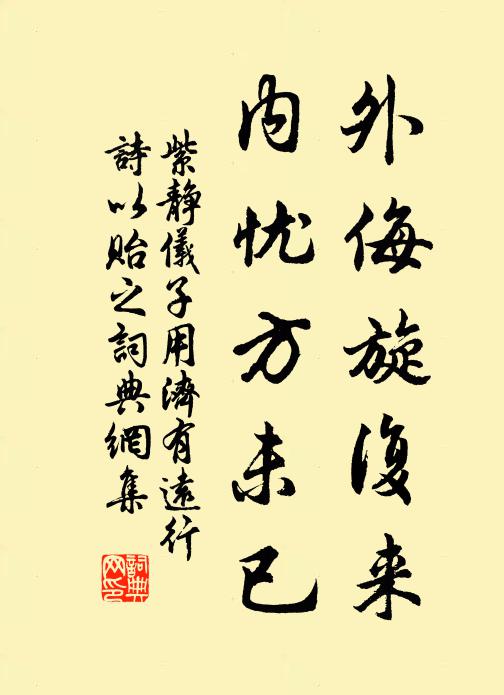 外侮旋復来
内忧方未已
紫静儀子用濟有遠行
詩以贻之詞典網集
詞典
网印